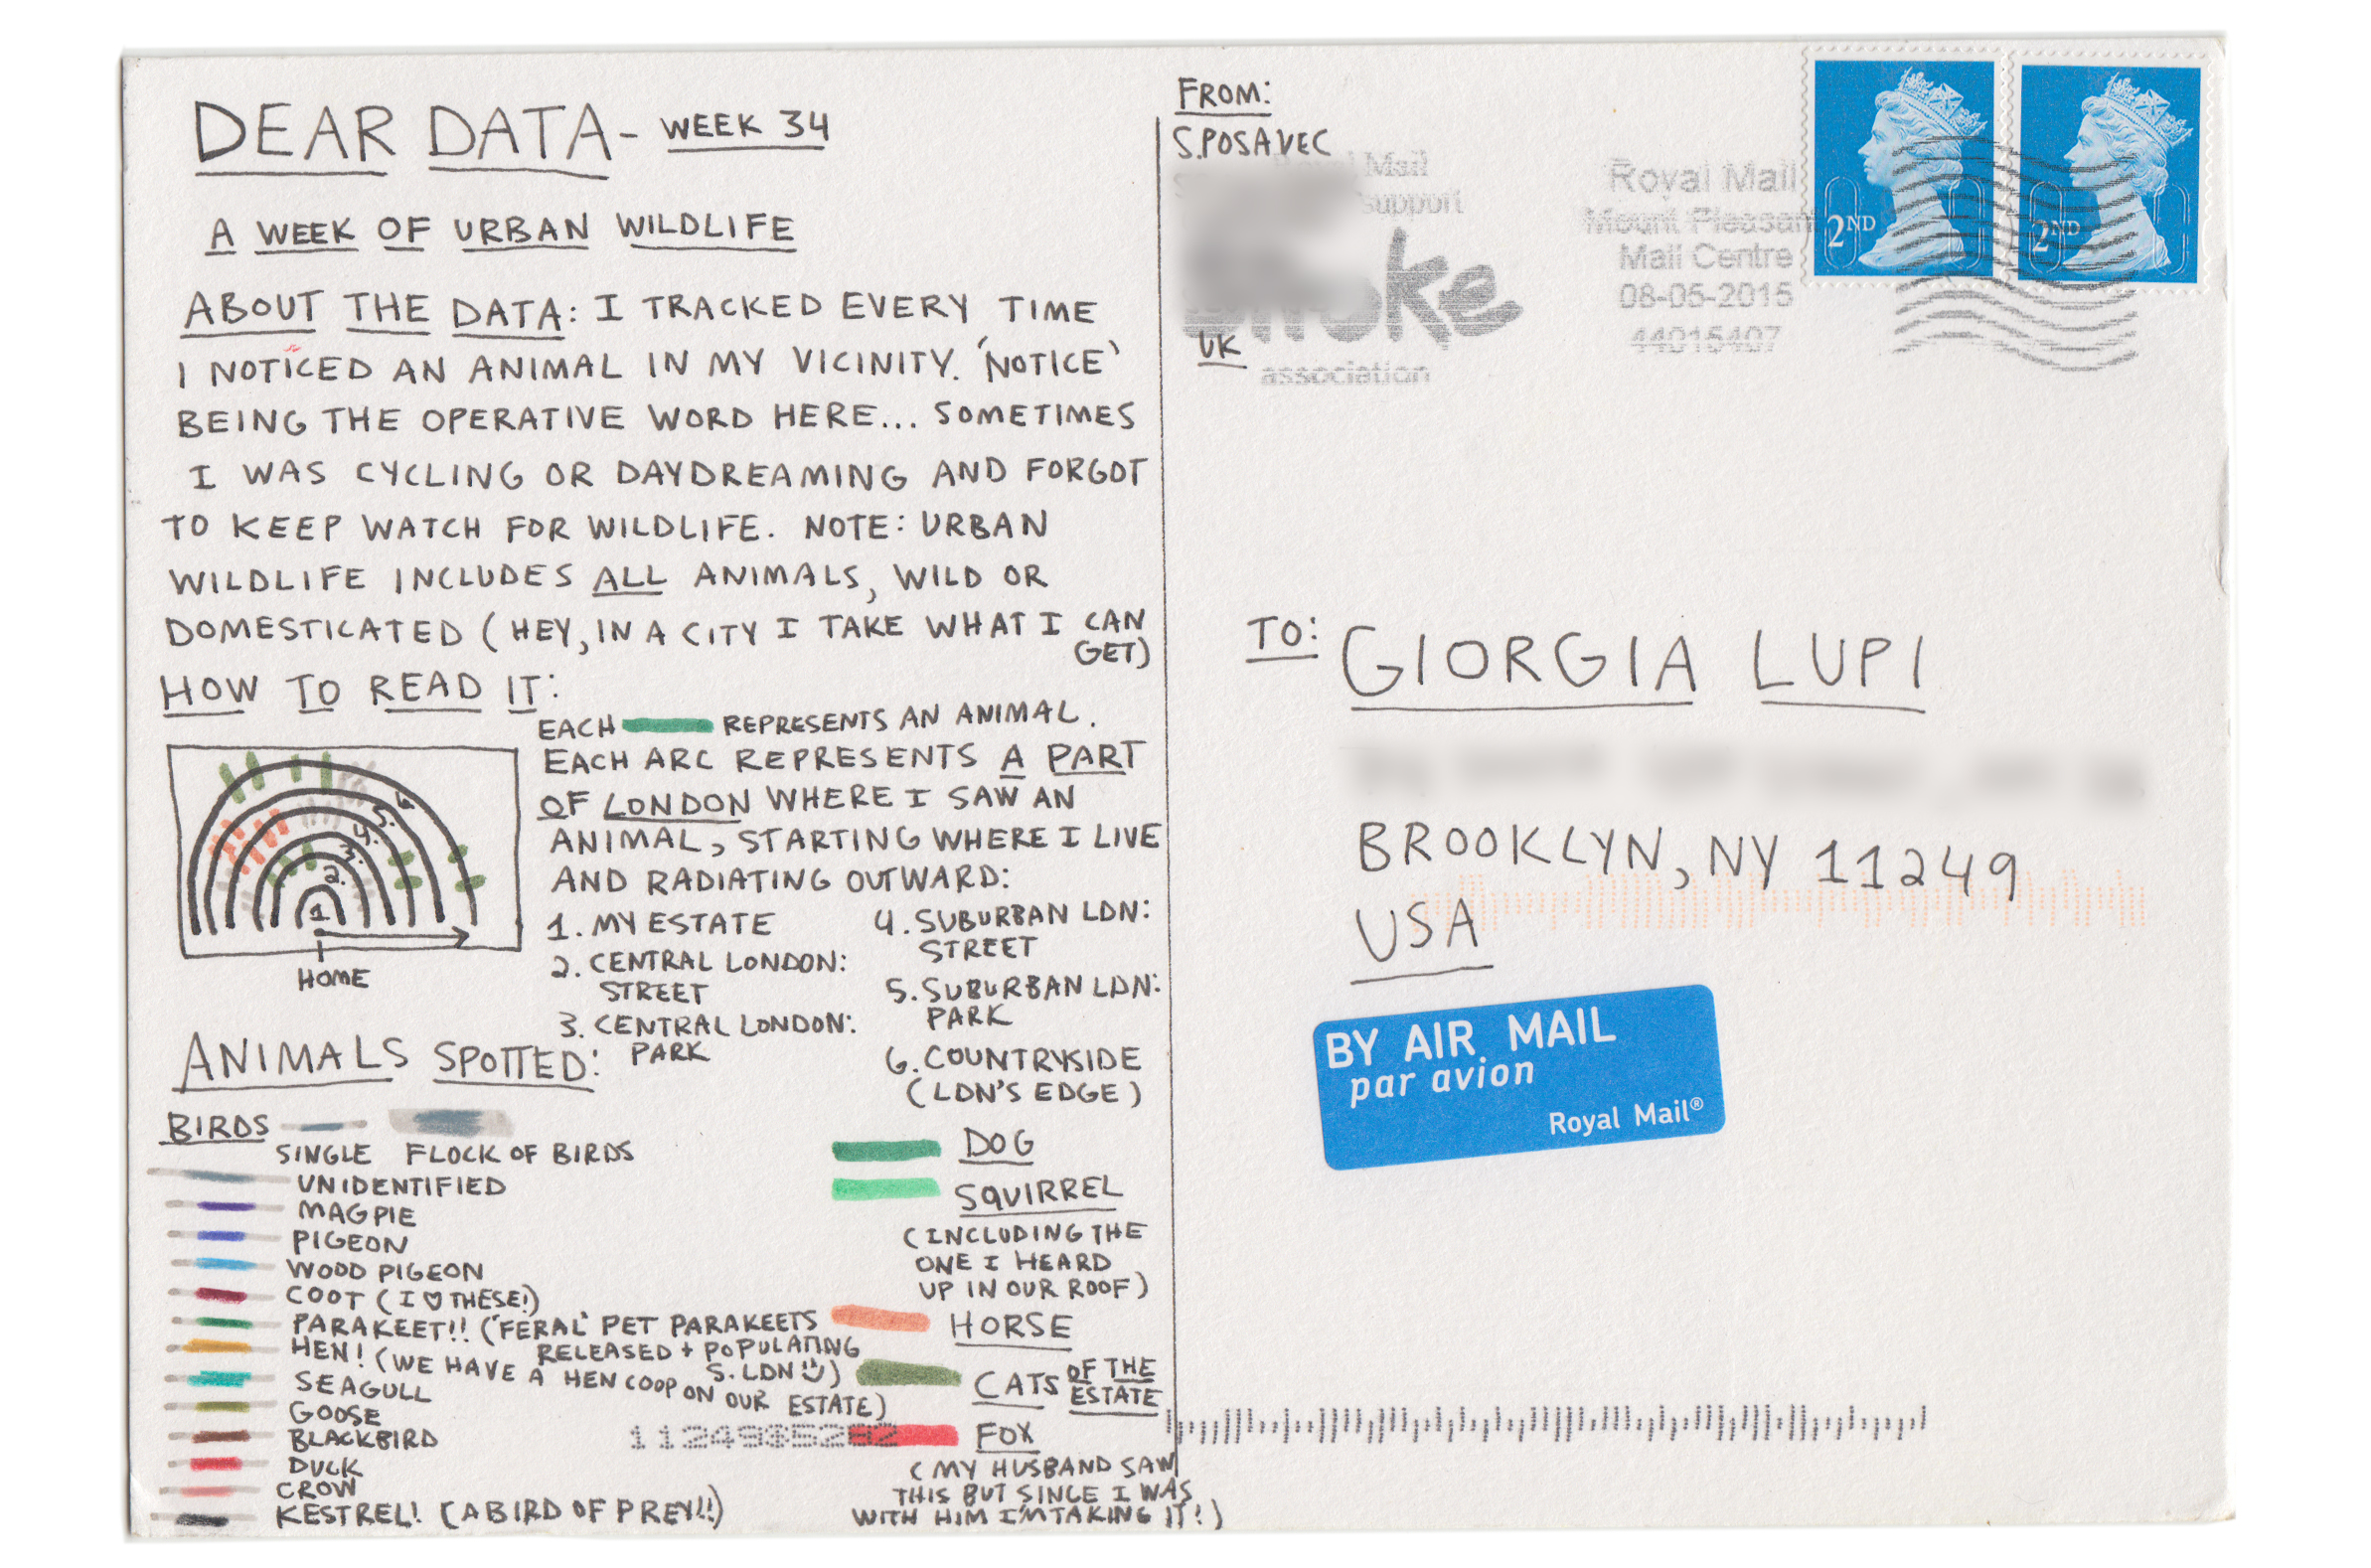 DEAR DATA - WEEK 34
A WEEK OF URBAN WILDLIFE
ABOUT THE DATA: I TRACKED EVERY TIME
I NOTICED AN ANIMAL IN MY VICINITY. 'NOTICE'
BEING THE OPERATIVE WORD HERE... SOMETIMES
I WAS CYCLING OR DAYDREAMING AND FORGOT
TO KEEP WATCH FOR WILDLIFE. NOTE: URBAN
WILDLIFE INCLUDES ALL ANIMALS, WILD OR
DOMESTICATED (HEY, IN A CITY I TAKE WHAT I CAN
GET)
HOW TO READ IT:
EACH REPRESENTS AN ANIMAL.
EACH ARC REPRESENTS A PART
OF LONDON WHERE I SAW AN
ANIMAL, STARTING WHERE I LIVE
AND RADIATING OUTWARD:
1. MY ESTATE
2. CENTRAL LONDON:
STREET
3. CENTRAL LONDON:
PARK
4. SUBURBAN LDN:
STREET
5. SUBURBAN LDN:
PARK
6. COUNTRYSIDE
(LDN'S EDGE)
1.
2.
3.
4.
5.
6.
HOME
ANIMALS SPOTTED:
BIRDS
SINGLE FLOCK OF BIRDS
UNIDENTIFIED
MAGPIE
PIGEON
WOOD PIGEON
COOT (I ♡ THESE!)
PARAKEET!! ('FERAL' PET PARAKEETS
RELEASED + POPULATING
S. LDN)
HEN! (WE HAVE A HEN COOP ON OUR ESTATE)
SEAGULL
GOOSE
BLACKBIRD
DUCK
CROW
KESTREL! (A BIRD OF PREY!!)
DOG
SQUIRREL
(INCLUDING THE
ONE I HEARD
UP IN OUR ROOF)
HORSE
CATS OF THE
ESTATE
FOX
(MY HUSBAND SAW
THIS BUT SINCE I WAS
WITH HIM I'M TAKING IT!)
FROM:
S.POSAVEC
UK
Mail
support
association
Royal Mail
Mount Pleasant
Mail Centre
08-05-2015
44015407
2ND
2ND
TO: GIORGIA LUPI
BROOKLYN, NY 11249
USA
BY AIR MAIL
par avion
Royal Mail®